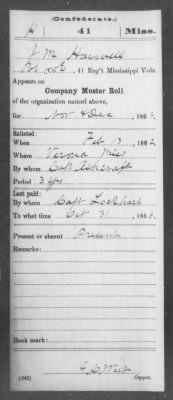 (Confederate.)
H 41 Miss.
J M
Co. E, 41 Reg't Mississippi Vols.
Appears on
Company Muster Roll
of the organization named above,
for Nov & Dec, 186
Enlisted:
When Feb 13, 1862
Where Verona Miss
By whom Capt Ashcraft
Period 3 yrs
Last paid:
By whom Capt Lockhart
To what time Oct 31, 186
Present or absent Present
Remarks:
Book mark:
West
(642) Copyist.